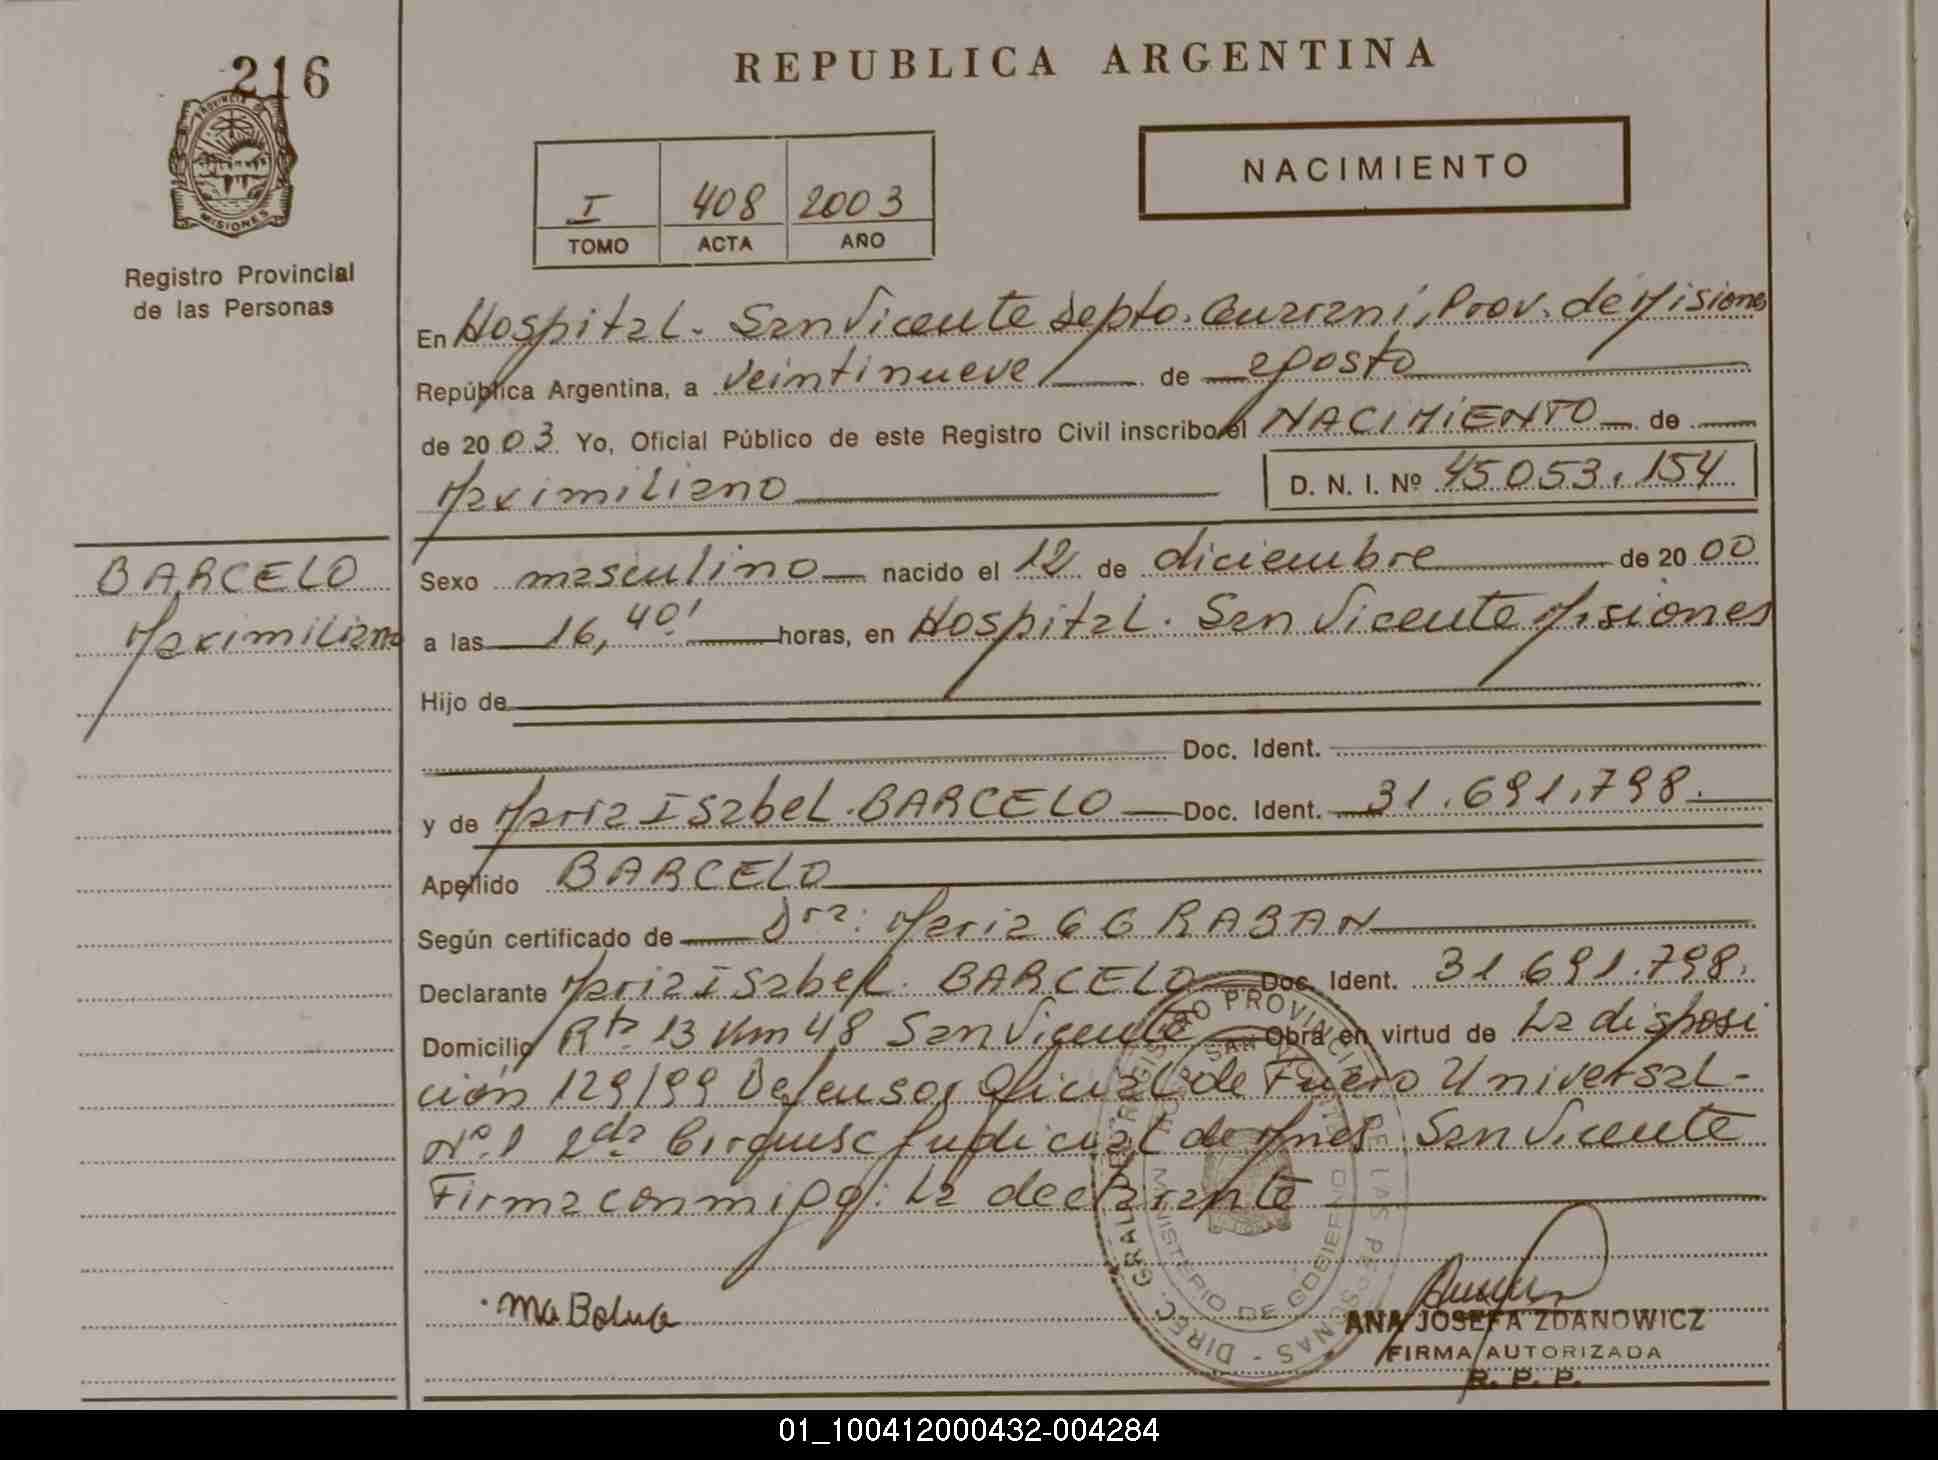 216
PROVINCIA DE
MISIONES
Registro Provincial
de las Personas
BARCELO
Maximiliano
REPUBLICA ARGENTINA
I 408 2003
TOMO ACTA AÑO
NACIMIENTO
En Hospital. San Vicente Depto. Guarani, Prov. de Misiones
República Argentina, a veintinueve de agosto
de 2003 Yo, Oficial Público de este Registro Civil inscribo el NACIMIENTO de
Maximiliano D. N. I. Nº 45053.154
Sexo masculino nacido el 12 de diciembre de 2000
a las 16,40' horas, en Hospital. San Vicente Misiones
Hijo de
Doc. Ident.
y de Maria Isabel. BARCELO Doc. Ident. 31.691.798.
Apellido BARCELO
Según certificado de Dra: Maria G G RABAN
Declarante Maria Isabel. BARCELO Doc. Ident. 31.691.798.
Domicilio Rta 13 Km 48 San Vicente Obra en virtud de La disposi
ción 129/99 Defensor Oficial de Fuero Universal-
Nº.1 2da Cirqunsc Judicial de Mnes. San Vicente
Firma conmigo: La declarante
DIREC. GRAL. DE REGISTRO PROVINCIAL DE LAS PERSONAS -
MINISTERIO DE GOBIERNO
ANA JOSEFA ZDANOWICZ
FIRMA AUTORIZADA
R. P. P.
01_100412000432-004284